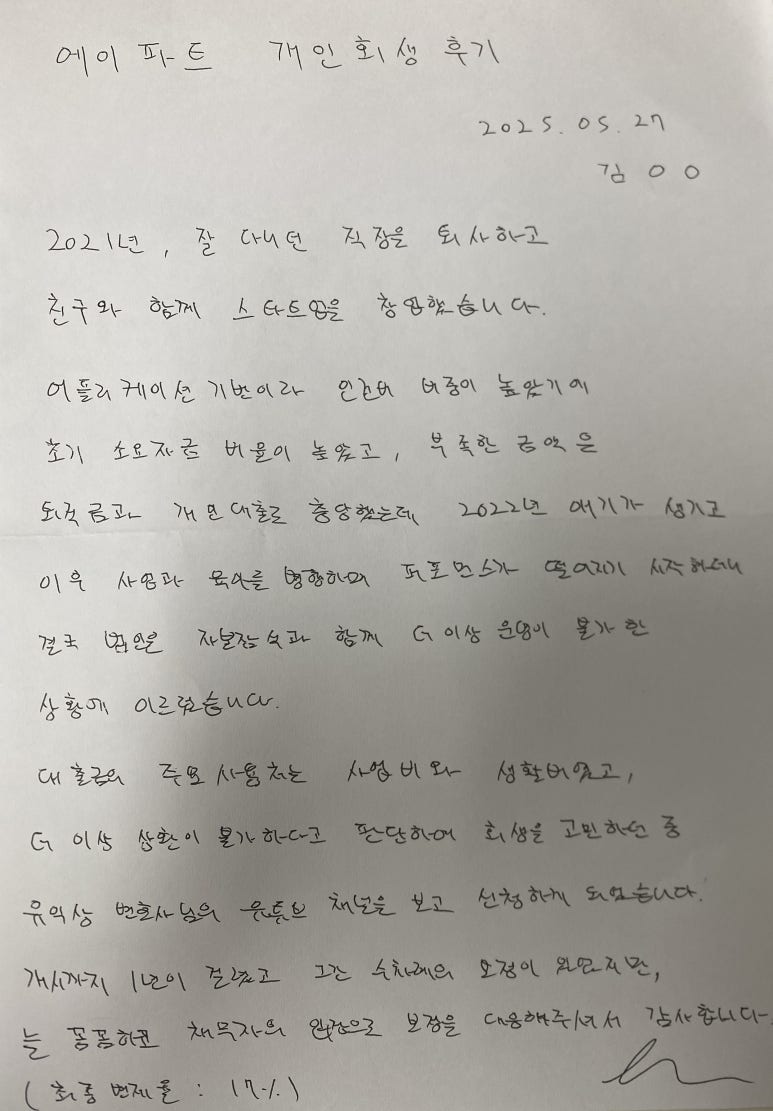 에이파트 개인회생 후기
2025. 05. 27
김 O O
2021년, 잘 다니던 직장을 퇴사하고
친구와 함께 스타트업을 창업했습니다.
어플리케이션 기반이라 인건비 비중이 높았기에
초기 소요자금 비율이 높았고, 부족한 금액은
퇴직금과 개인대출로 충당했는데 2022년 애기가 생기고
이후 사업과 육아를 병행하며 퍼포먼스가 떨어지기 시작하더니
결국 법인은 자본잠식과 함께 더 이상 운영이 불가한
상황에 이르렀습니다.
대출금의 주요 사용처는 사업비와 생활비였고,
더 이상 상환이 불가하다고 판단하여 회생을 고민하던 중
유익상 변호사님의 유튜브 채널을 보고 신청하게 되었습니다.
개시까지 1년이 걸렸고 그간 수차례의 보정이 있었지만,
늘 꼼꼼하고 채무자의 입장으로 보정을 대응해주셔서 감사합니다.
(최종 변제율 : 17%)